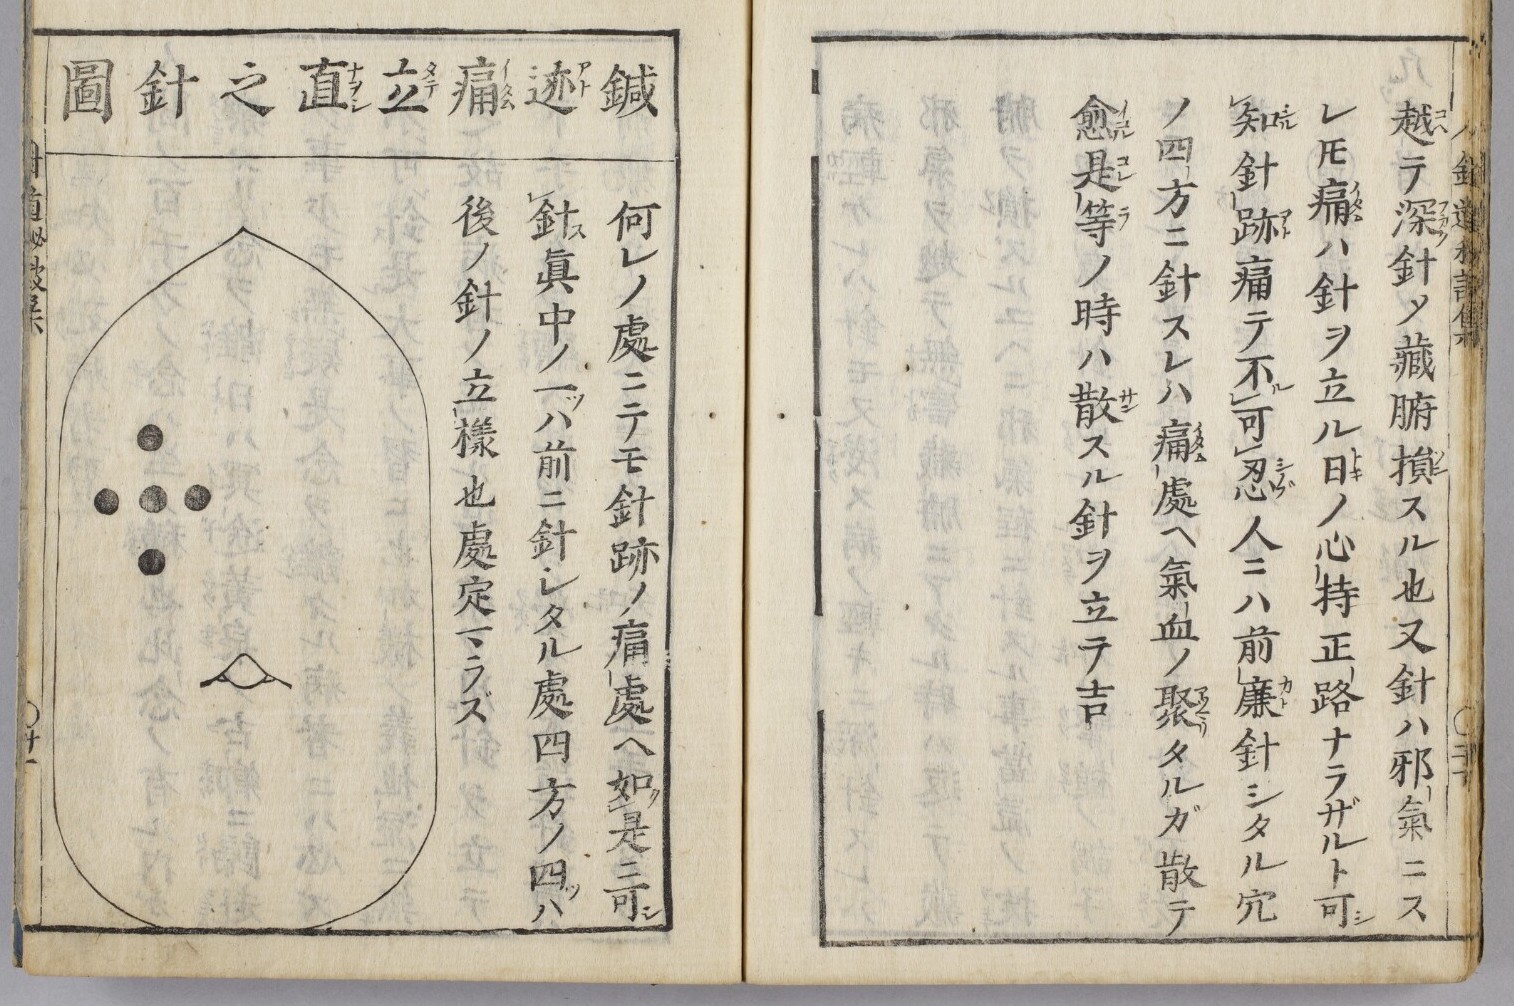 越テ深針メ藏腑損スル也又針ハ邪氣ニス
レ𪜈痛ハ針ヲ立ル日ノ心持正路ナラザルト可
知針跡痛テ不可忍人ニハ前廉針シタル穴
ノ四方ニ針スレハ痛處ヘ氣血ノ聚タルガ散テ
愈是等ノ時ハ散スル針ヲ立テ吉
鍼迹痛立直之針圖
何レノ處ニテモ針跡ノ痛處ヘ如是ニ可
針眞中ノ一ハ前ニ針シタル處四方ノ四ハ
後ノ針ノ立樣也處定マラズ